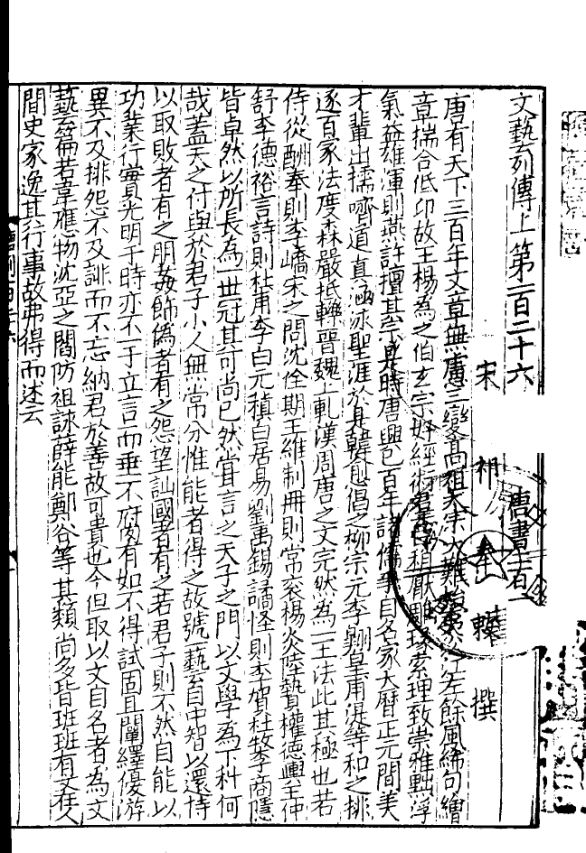 文藝列傳上第一百二十六
唐書二百
宋 祁 奉 撰
唐有天下三百年文章無慮三變髙祖太宗大難始夷沿江左餘風絺句繪
章揣合低卬故王楊為之伯玄宗好經術羣臣稍厭雕瑑索理致崇雅黜浮
氣益雄渾則燕許擅其宗是時唐興已百年諸儒爭自名家大曆正元間美
才輩出擩嚌道真涵泳聖涯於是韓愈倡之柳宗元李翺皇甫湜等和之排
逐百家法度森嚴抵轢晉魏上軋漢周唐之文完然為一王法此其極也若
侍從酬奉則李嶠宋之問沈佺期王維制冊則常袞楊炎陸贄權德輿王仲
舒李德裕言詩則杜甫李白元稹白居易劉禹錫譎怪則李賀杜牧李商隱
皆卓然以所長為一世冠其可尚已然嘗言之夫子之門以文學為下科何
哉蓋天之付與於君子小人無常分惟能者得之故號一藝自中智以還恃
以取敗者有之朋姦飾偽者有之怨望訕國者有之若君子則不然自能以
功業行實光明于時亦不一于立言而垂不腐有如不得試固且闡繹優游
異不及排怨不及誹而不忘納君於善故可貴也今但取以文自名者為文
藝篇若韋應物沈亞之閻防祖詠薛能鄭谷等其類尚多皆班班有文在人
間史家逸其行事故弗得而述云